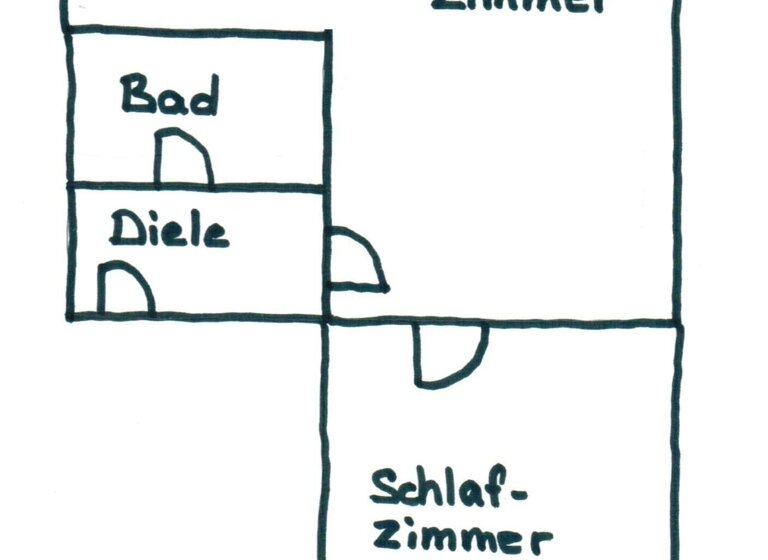 Zimmer
Bad
Diele
Schlaf-
zimmer